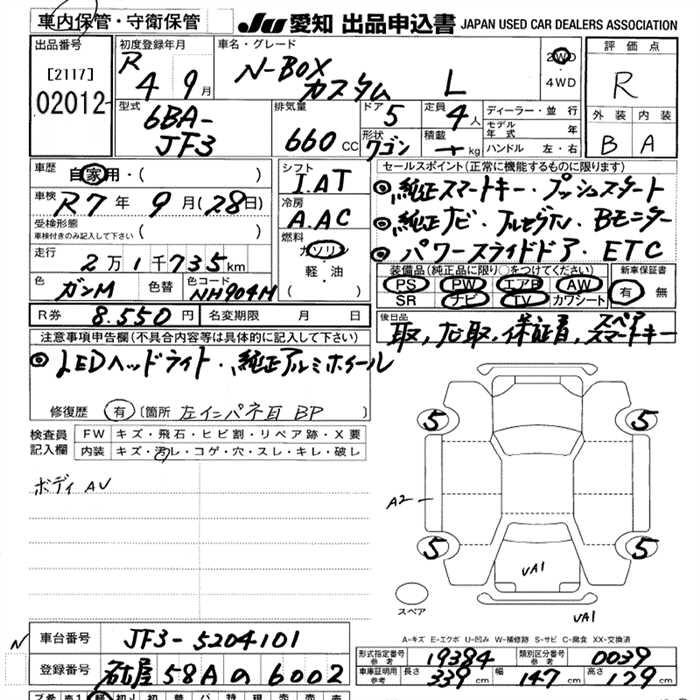 車内保管・守衛保管
JU 愛知 出品申込書 JAPAN USED CAR DEALERS ASSOCIATION
出品番号 初度登録年月 車名・グレード 評価点
[2117] R 4 9月 N-BOX カスタム L 2WD ・ 4WD R
02012 型式 排気量 ドア 5 定員 4人 ディーラー・並行 外装 内装
6BA-JF3 660cc 形状 ワゴン 積載 - kg モデル年式 ハンドル 左・右 B A
車歴 自家用・( ) シフト セールスポイント(正常に機能するものに限ります)
車検 R7年9月(28日) I.AT ◎純正スマートキー・プッシュスタート
受検形態 車検付きのみ記入して下さい ( ) 冷房 A.AC ◎純正ナビ・フルセグTV・Bモニター
走行 2万1千735km 燃料 ガソリン・軽・油 ◎パワースライドドア・ETC
色 ガンM 色替 色コード NH904M 装備品(純正品に限り○をつけてください) 新車保証書
PS PW エアB AW 有 無
SR ナビ TV カワシート
R券 8.550円 名変期限 月 日 後日品 取,ナビ取,保証書,スペアスマートキー
注意事項申告欄(不具合内容等は具体的に記入して下さい)
◎LEDヘッドライト・純正アルミホイール
修復歴 有 [箇所 左インパネ目 BP ]
検査員記入欄 FW キズ・飛石・ヒビ割・リペア跡・X要
内装 キズ・汚レ・コゲ・穴・スレ・キレ・破レ
ボディ AU
5 5
A2
5 5
UA1
スペア
UA1
A-キズ E-エクボ U-凹み W-補修跡 S-サビ C-腐食 XX-交換済
車台番号 JF3-5204101 形式指定番号 参考 19384 類別区分番号 参考 0039
N
登録番号 名古屋 58A の 6002 車庫証明用 参考 長さ 339cm 幅 147cm 高さ 179cm